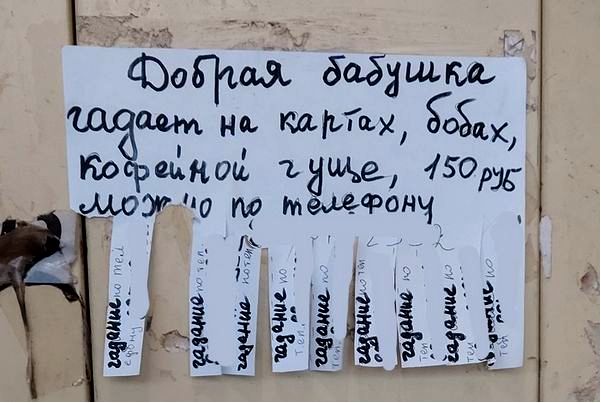 Добрая бабушка
гадает на картах, бобах,
кофейной гуще, 150 руб
можно по телефону
гадание по тел ефону
гадание по тел.
гадание по тел
гадание по тел.
гадание по тел.
гадание по тел
гадание по тел
гадание по тел
гадание по тел